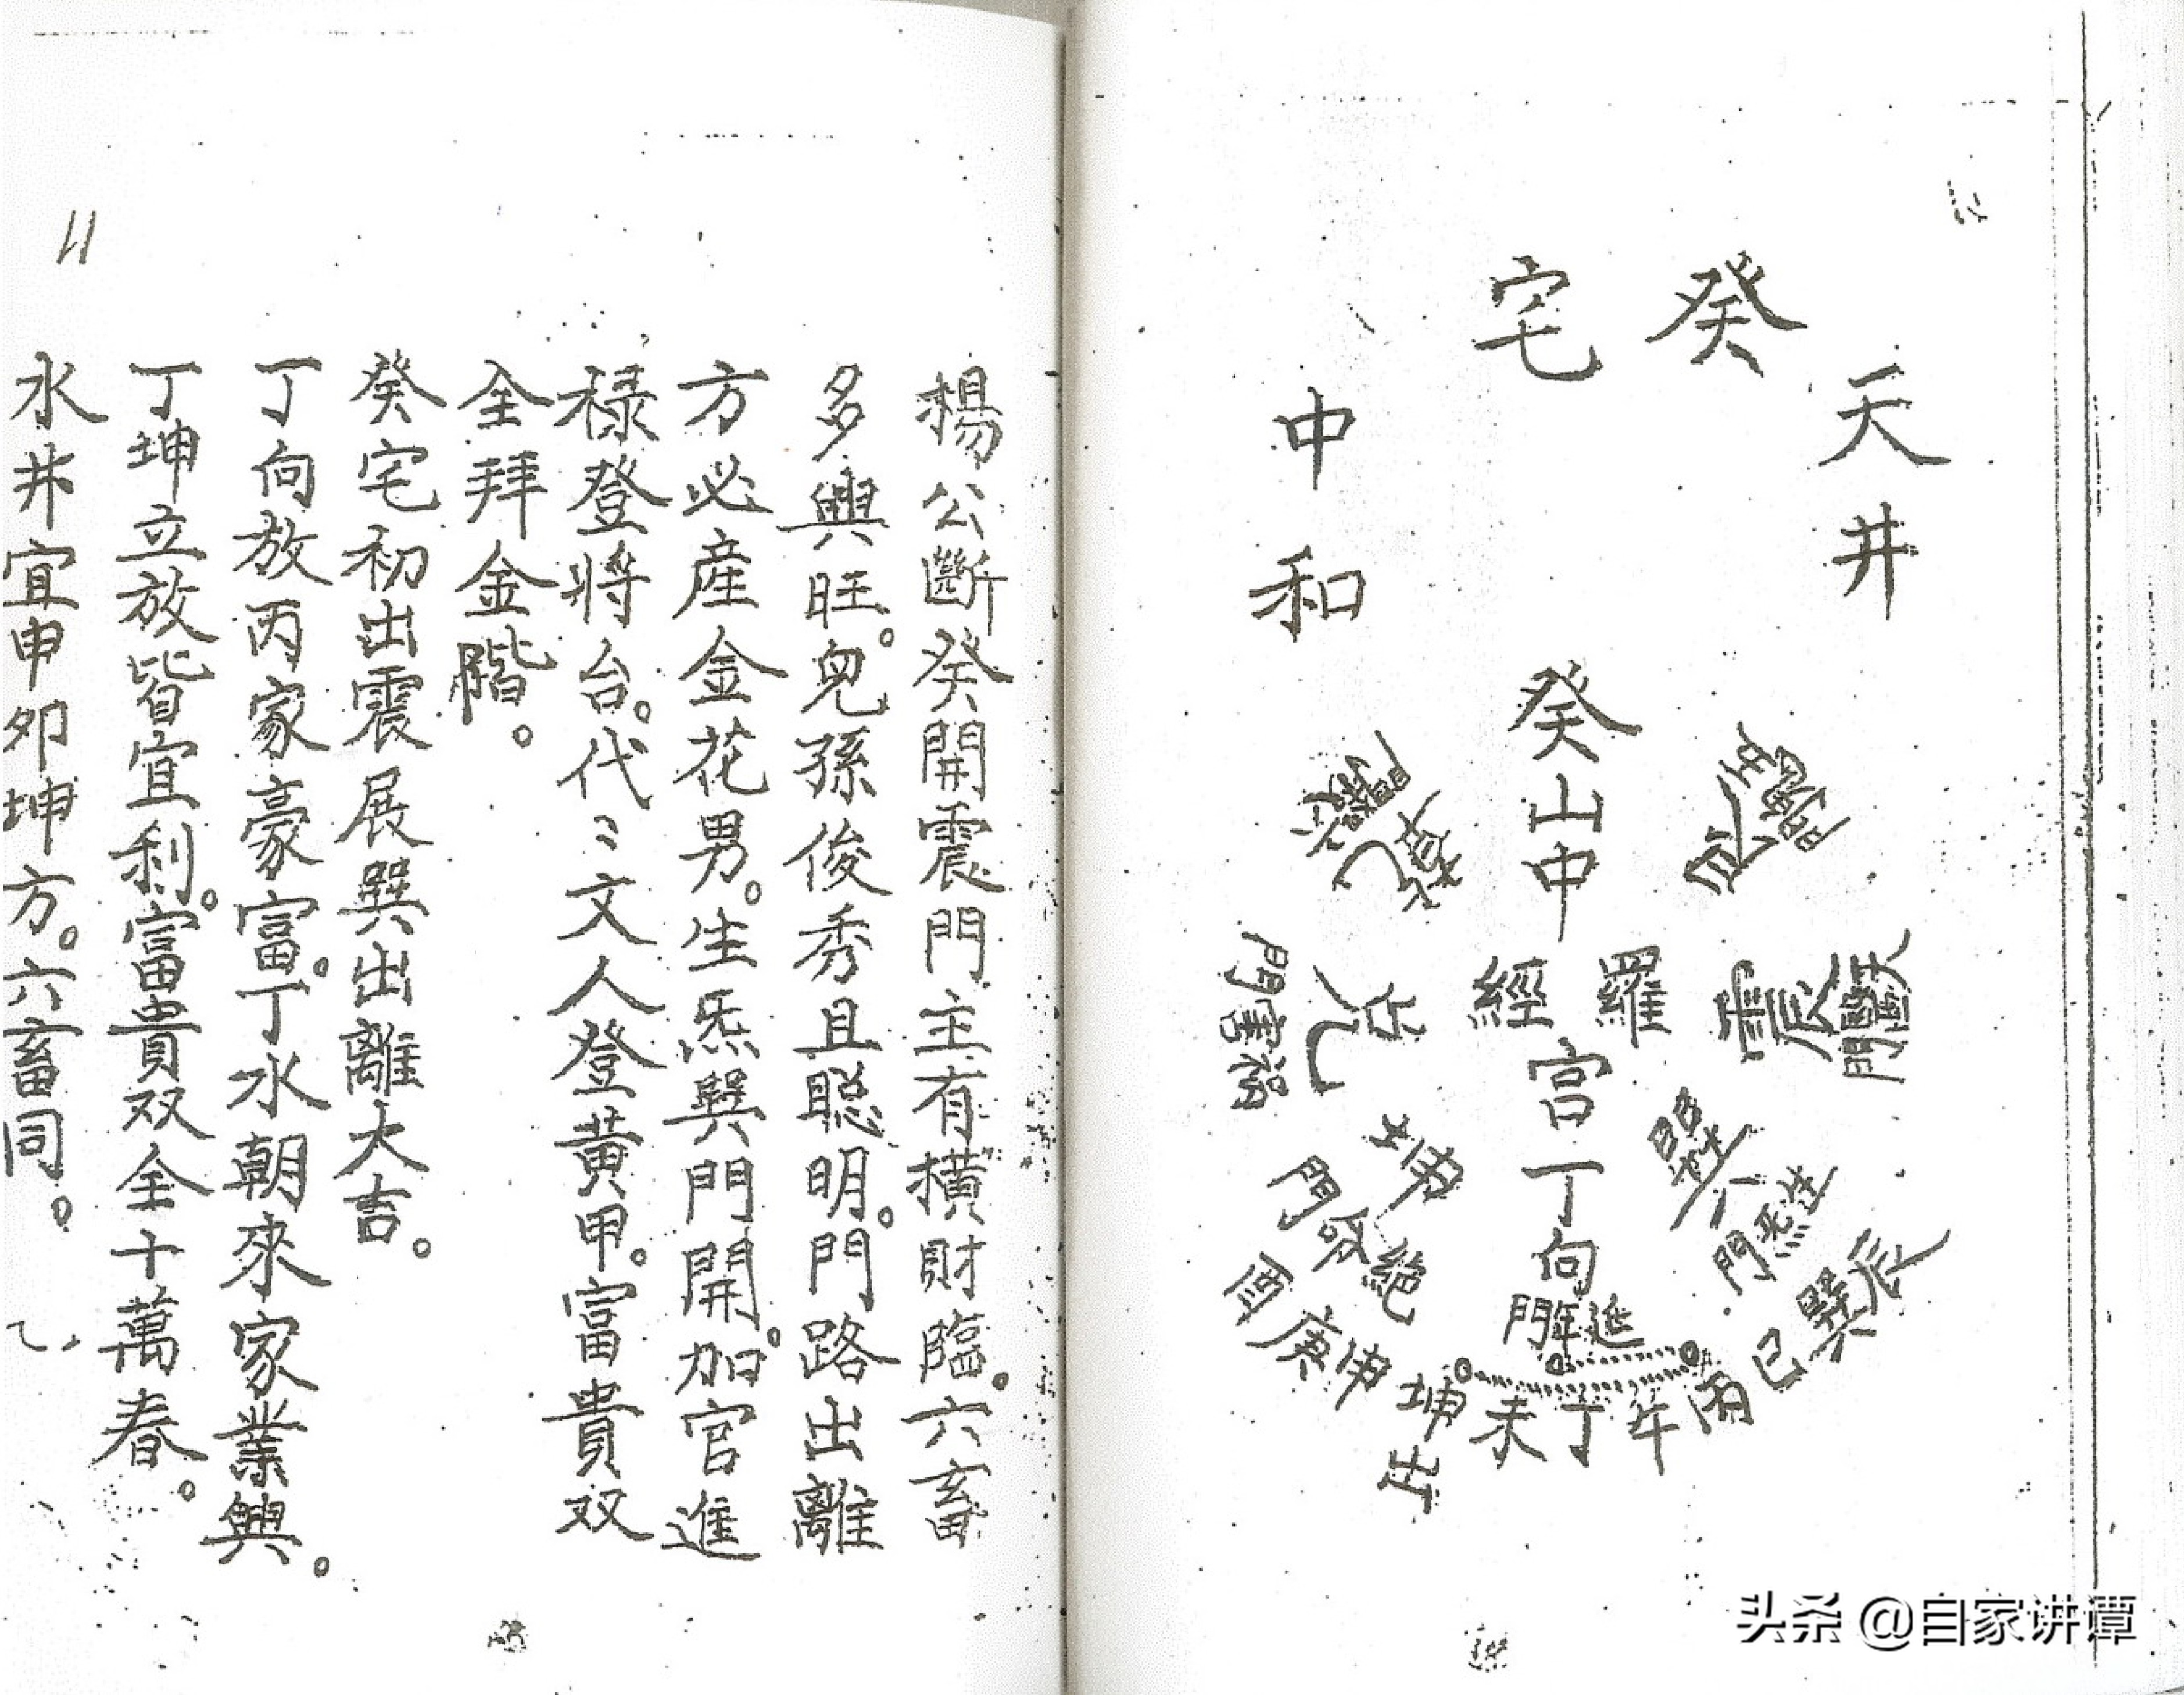 癸宅
天井
中和
癸山中
羅經
宮
丁向
艮
震
巽
生炁門
坤
兌
乾
進
門
辰
巽
巳
丙
午
丁
未
坤
申
庚
酉
出
楊公斷癸開震門主有橫財臨。六畜
多興旺。兒孫俊秀且聰明。門路出離
方必產金花男。生炁巽門開。加官進
禄登將台。代〻文人登黃甲。富貴双
全拜金階。
癸宅初出震展巽出離大吉。
丁向放丙家豪富。丁水朝來家業興。
丁坤立放皆宜利。富貴双全十萬春。
水井宜申卯坤方。六畜同。
11
头条 @自家讲谭